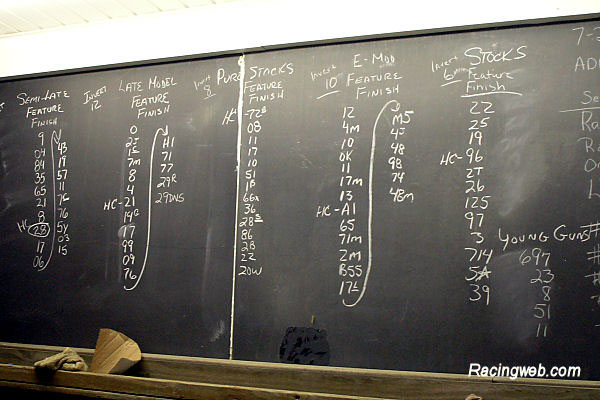 SEMI-LATE
FEATURE
FINISH
9
04
84
35
65
21
8
HC 28
17
06
43
19
57
11
76
76
5Y
03
15
INVERT
12
LATE MODEL
FEATURE
FINISH
0
1S
7M
8
4
HC-21
17
99
09
76
H1
71
77
29R
29DNS
INVERT
8
PURE STOCKS
FEATURE
FINISH
HC -72B
08
11
17
10
51
66X
36
28S
86
28
22
20W
INVERT
10
E-MOD
FEATURE
FINISH
12
4M
10
OK
11
17M
13
HC-A1
65
71M
2M
B55
17L
M5
48
98
74
48M
INVERT
6
STOCKS
FEATURE
FINISH
22
25
19
HC-96
2T
26
125
97
3
714
5A
39
YOUNG GUNS
697
23
8
51
11
Racingweb.com